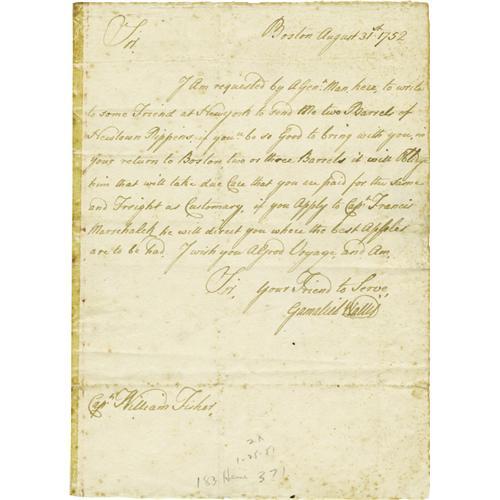 Boston August 31st 1752
Sir.
I Am requested by A Gen.n Man, here, to write
to some Friend at Newyork to send Me two Barrels of
Newtown Pippens, if you'll be so Good to bring with you, on
your return to Boston two or three Barrels it will Oblidge
him that will take due Care that you are paid for the Same
and Freight as Customary, if you Apply to Capt. Francis
Marschalek he will direct you where the best Apples
are to be had. I wish you A Good Voyage, and Am,
Sir. Your Friend to Serve
Gamaliel Wallis
Capt. William Fisher
2x
1-25-51
183 Hame 371